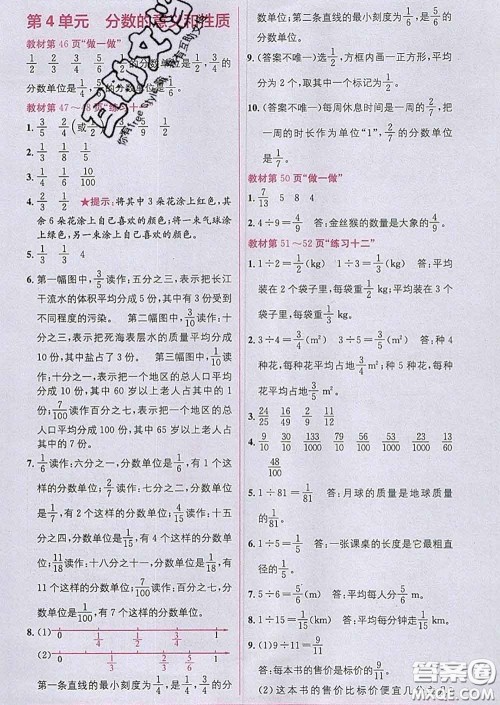 第4单元 分数的意义和性质
教材第46页“做一做”
的分数单位是
分数单位是
教材第47～
1.
2.
3.
4. 2/3 1/3 ★提示：将其中3朵花涂上红色，其
余6朵花涂上自己喜欢的颜色；将一束气球涂
上绿色，另一束涂上自己喜欢的颜色。
5. 1/3 1/3 4
6. 第一幅图中，3/5读作：五分之三，表示把长江
干流水的体积平均分成5份，其中有3份受到
不同程度的污染。 第二幅图中，3/10读作：十
分之三，表示把死海表层水的质量平均分成
10份，其中盐占了3份。 第三幅图中，1/10读
作：十分之一，表示把一个地区的总人口平均
分成10份，其中60岁以上老人占其中的1
份；7/100读作百分之七，表示把一个地区的总
人口平均分成100份，其中65岁以上老人占
其中的7份。
7. 1/6读作：六分之一，分数单位是1/6，有1个这
样的分数单位；2/7读作：七分之二，分数单位
是1/7，有2个这样的分数单位；4/15读作：十五
分之四，分数单位是1/15，有4个这样的分数单
位；11/18读作：十八分之十一，分数单位是1/18，有
11个这样的分数单位；7/100读作：百分之七，分
数单位是1/100，有7个这样的分数单位。
8. (1) 0 1/4 1/2 3/4 1
(2) 0 1/5 3/5 1
第一条直线的最小刻度为1/4，是3/4的分数
单位；第二条直线的最小刻度为1/5，是3/5的分
数单位。
9. (答案不唯一)选1/2，方框内画一正方形，平均
分为2个，其中一个标记为1/2。
10. (答案不唯一)每周休息时间是一周的2/7，把
一周的时长作为单位“1”，2/7的分数单位
是1/7。
教材第50页“做一做”
1. 7/13 5 8 4
2. 4÷9＝4/9 答：金丝猴的数量是大象的4/9。
教材第51～52页“练习十二”
1. 1÷2＝1/2(kg) 1÷3＝1/3(kg) 答：平均
装在2个袋子里，每袋重1/2kg；平均装在3个
袋子里，每袋重1/3kg。
2. 3÷4＝3/4(m²) 3÷5＝3/5(m²) 答：种4
种花，每种花平均占地3/4m²；种5种花，每种
花平均占地3/5m²。
3. 24/25 16/29
4. 9/10
48/100
5. 1÷81＝1/81 答：月球的质量是地球质量
的1/81。
6. 1÷5＝1/5 答：一张课桌的长度是它的最大
直径的1/5。
7. 答：平均每人分
8. 答：平均每分钟走
9. (1)9÷11＝9/11
答：每本书的售价是标价的9/11。
(2)这本书的售价比标价便宜几分之几？
答案圈
MXQE.COM